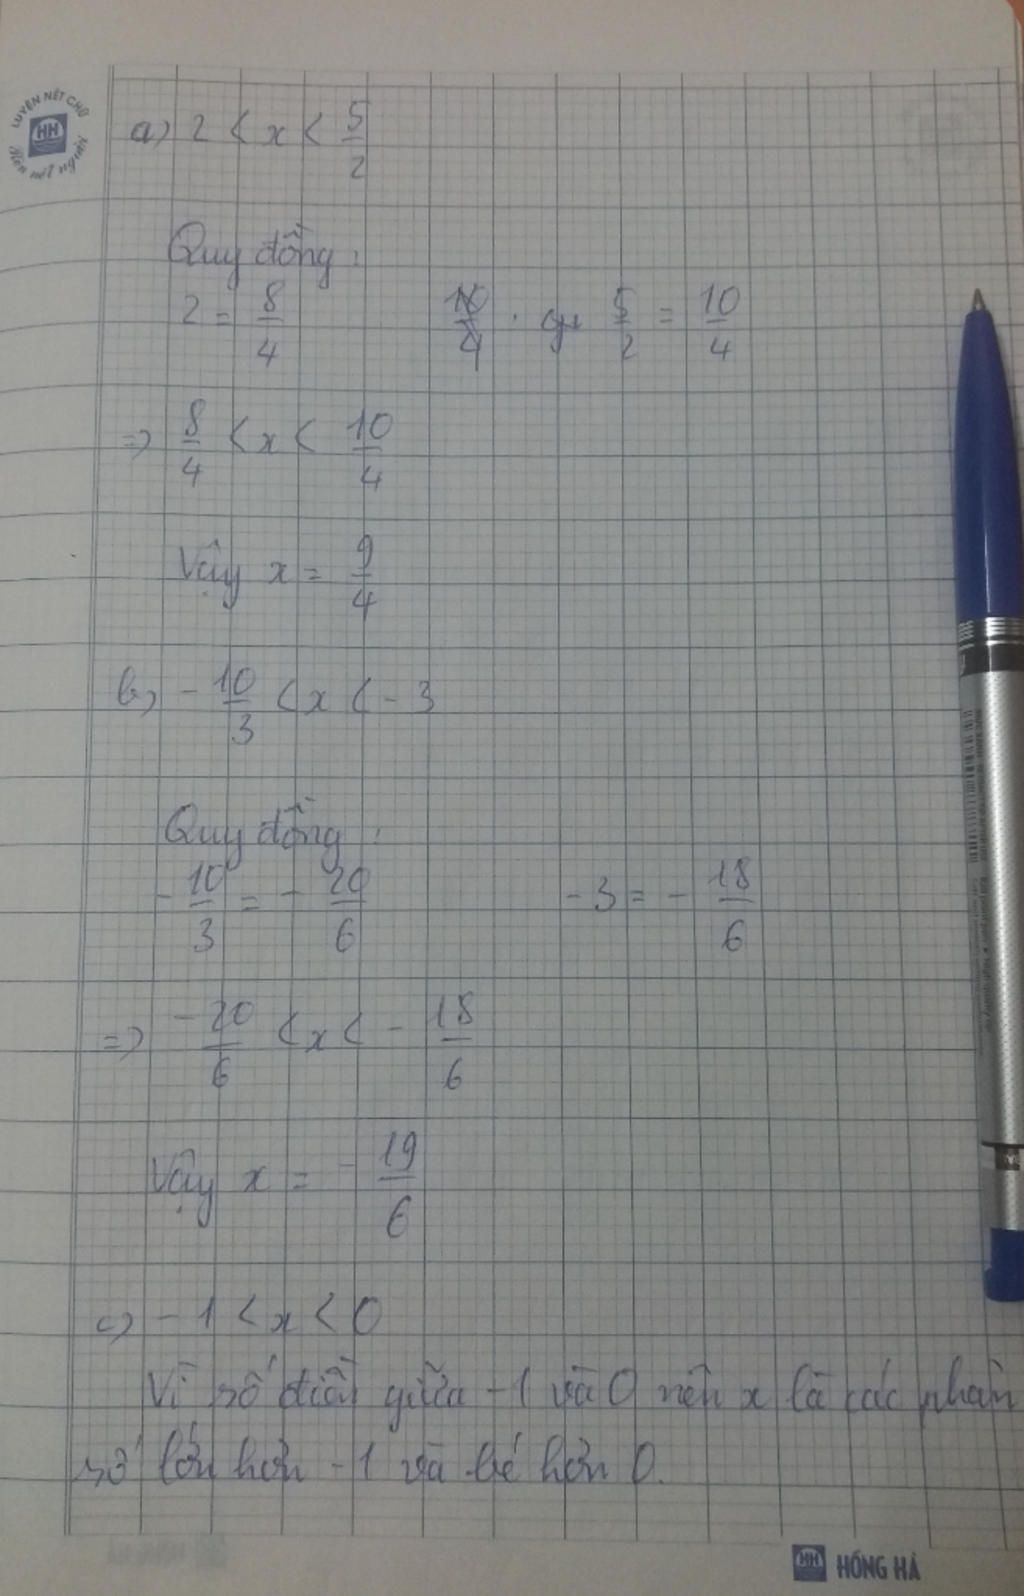 LUYỆN NẾT CHỮ
HH
Rèn nết người
a) 2 < x < 5/2
Quy đồng:
2 = 8/4 10/4 . 5/2 = 10/4
=> 8/4 < x < 10/4
Vậy x = 9/4
b) -10/3 < x < -3
Quy đồng:
-10/3 = -20/6 -3 = -18/6
=> -20/6 < x < -18/6
Vậy x = -19/6
c) -1 < x < 0
Vì số điền giữa -1 và 0 nên x là các phân
số lớn hơn -1 và bé hơn 0.
HH HỒNG HÀ